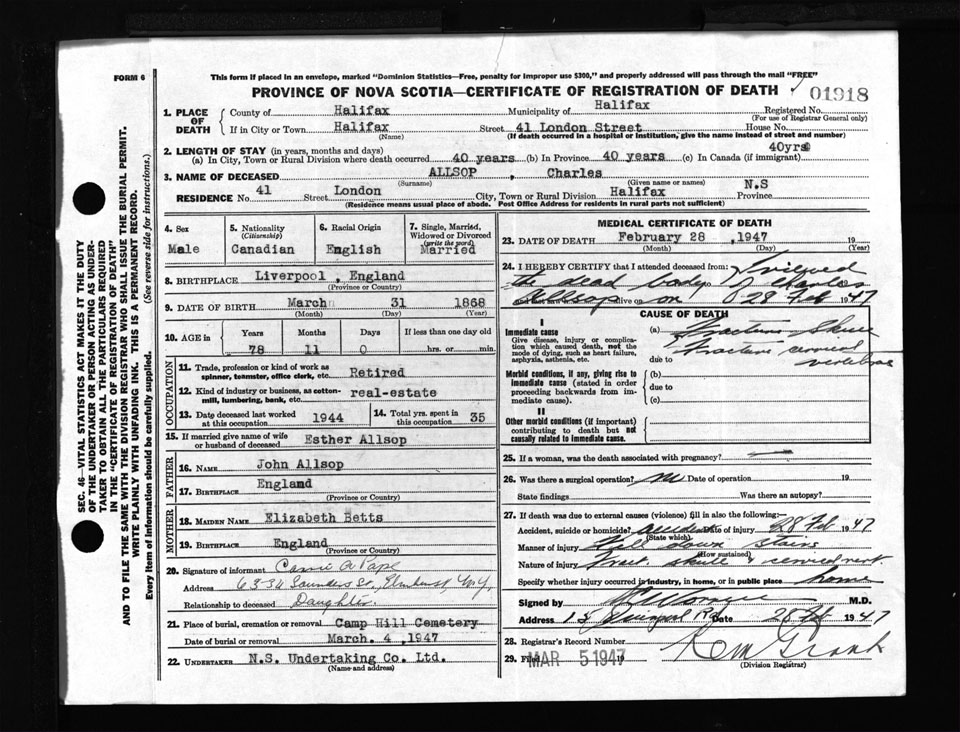 FORM 6
This form if placed in an envelope, marked "Dominion Statistics—Free, penalty for improper use $300," and properly addressed will pass through the mail "FREE"
PROVINCE OF NOVA SCOTIA—CERTIFICATE OF REGISTRATION OF DEATH
01918
1. PLACE OF DEATH
County of Halifax Municipality of Halifax Registered No.
(For use of Registrar General only)
If in City or Town Halifax Street 41 London Street House No.
(Name) (If death occurred in a hospital or institution, give the name instead of street and number)
2. LENGTH OF STAY (in years, months and days) 40yrs
(a) In City, Town or Rural Division where death occurred 40 years (b) In Province 40 years (c) In Canada (if immigrant)
3. NAME OF DECEASED ALLSOP , Charles
(Surname) (Given name or names)
RESIDENCE No. 41 Street London City, Town or Rural Division Halifax Province N.S
(Residence means usual place of abode. Post Office Address for residents in rural parts not sufficient)
4. Sex Male
5. Nationality (Citizenship) Canadian
6. Racial Origin English
7. Single, Married, Widowed or Divorced (write the word) Married
8. BIRTHPLACE Liverpool , England
(Province or Country)
9. DATE OF BIRTH March 31 1868
(Month) (Day) (Year)
10. AGE in Years Months Days If less than one day old
78 11 0 hrs. or min.
OCCUPATION
11. Trade, profession or kind of work as spinner, teamster, office clerk, etc. Retired
12. Kind of industry or business, as cotton-mill, lumbering, bank, etc. real-estate
13. Date deceased last worked at this occupation 1944
14. Total yrs. spent in this occupation 35
15. If married give name of wife or husband of deceased Esther Allsop
FATHER
16. NAME John Allsop
17. BIRTHPLACE England
(Province or Country)
MOTHER
18. MAIDEN NAME Elizabeth Betts
19. BIRTHPLACE England
(Province or Country)
20. Signature of informant Carrie A Pape
Address 63-34 Saunders St., Elmhurst, N.Y.
Relationship to deceased Daughter.
21. Place of burial, cremation or removal Camp Hill Cemetery
Date of burial or removal March. 4 ,1947
22. UNDERTAKER N.S. Undertaking Co. Ltd.
(Name and address)
MEDICAL CERTIFICATE OF DEATH
23. DATE OF DEATH February 28 ,1947 19
(Month) (Day) (Year)
24. I HEREBY CERTIFY that I attended deceased from: I viewed
the dead body of Charles
Allsop alive on on 28 Feb 1947
CAUSE OF DEATH
I
Immediate cause
Give disease, injury or complication which caused death, not the mode of dying, such as heart failure, asphyxia, asthenia, etc.
(a) Fracture Skull
Fracture cervical
due to vertebrae
Morbid conditions, if any, giving rise to immediate cause (stated in order proceeding backwards from immediate cause).
(b)
due to
(c)
II
Other morbid conditions (if important) contributing to death but not causally related to immediate cause.
25. If a woman, was the death associated with pregnancy?
26. Was there a surgical operation? no Date of operation 19
State findings Was there an autopsy?
27. If death was due to external causes (violence) fill in also the following:
Accident, suicide or homicide? accident Date of injury 28 Feb 1947
(State which)
Manner of injury Fell down stairs
(How sustained)
Nature of injury Fract. skull & cervical vert.
Specify whether injury occurred in industry, in home, or in public place home
Signed by M.D.
Address Date 28 Feb 1947
28. Registrar's Record Number
29. Filed MAR 5 1947 19
(Division Registrar)
SEC. 46—VITAL STATISTICS ACT MAKES IT THE DUTY
OF THE UNDERTAKER OR PERSON ACTING AS UNDER-
TAKER TO OBTAIN ALL THE PARTICULARS REQUIRED
IN THE "CERTIFICATE OF REGISTRATION OF DEATH"
AND TO FILE THE SAME WITH THE DIVISION REGISTRAR WHO SHALL ISSUE THE BURIAL PERMIT.
WRITE PLAINLY WITH UNFADING INK. THIS IS A PERMANENT RECORD.
Every item of information should be carefully supplied. (See reverse side for instructions.)